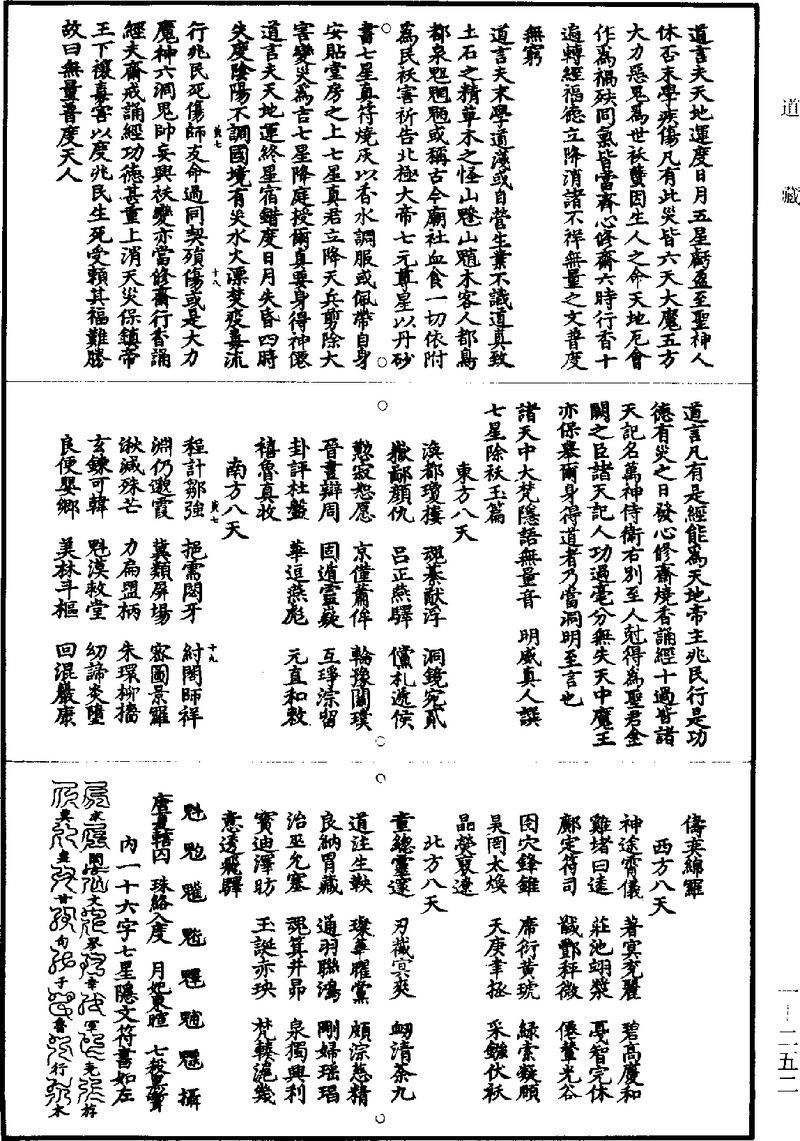 道藏
道言夫天地運度日月五星虧盈至聖神人
休否末學疾傷凡有此災皆六天大魔五方
大力惡鬼為世袄蠹因生人之命天地厄會
作為禍殃同氣皆當齊心修齋六時行香十
遍轉經福德立降消諸不祥無量之文普度
無窮
道言夫末學道淺或自營生業不識道真致
土石之精草木之怪山魈山題木客人都鳥
都泉或稱古今廟社血食一切依附
為民袄害祈告北極大帝七元尊星以丹砂
書七星真符燒灰以香水調服或佩帶自身
安貼堂房之上七星真君立降天兵剪除大
害變災為吉七星降庭授爾真要身得神僊
道言夫天地運終星宿錯度日月失昏四時
失度陰陽不調國境有災水火漂焚疫毒流
行兆民死傷師友命過同契殞傷或是大力
魔神六洞鬼帥妄興袄變亦當修齋行香誦
經夫齋戒誦經功德甚重上消天災保鎮帝
王下禳毒害以度兆民生死受賴其福難勝
故曰無量普度天人
道言凡有是經能為天地帝主兆民行是功
德有災之日發心修齋燒香誦經十過皆諸
天記名萬神侍衛右別至人尅得為聖君金
闕之臣諸天記人功過毫分無失天中魔王
亦保舉爾身得道者乃當洞明至言也
諸天中大梵隱語無量音 明威真人譔
七星除袄玉篇
東方八天
滇都瓊樓 魂基猷浮 洞鏡宛貳
嶽鄙顏仇 呂正燕驛 儻札遞侯
懃寂恕愿 京僅蕭侔 輪豫闡璞
晉畫辯周 固逍靈蕤 互琤淙留
卦評杜盤 華垣燕彪 元直和敷
禧魯真收
南方八天
程計鄒強 挹霈閎牙 紂閔師祥
淵仍邀霞 冀類屏場 密圖景羅
湫減殊芒 力扁盟柄 朱環柳檣
玄鍊可韓 魁漠敕堂 幼諦炎墮
良便嬰鄉 美林斗樞 回混嚴康
儔英綿罪
西方八天
神途霄儀 著冥充麗 碧高慶和
雞堵曰逵 莊池翊漿 憂智完休
鄺定符司 戩酆秤微 僊輦光谷
囹穴鋒錐 席衍黃琥 緑索凝願
昊罔太煥 天庚聿拯 采鏹伏袄
晶縈裒遼
北方八天
童總靈邃 刃藏冥爽 衂清荼九
道注生軮 璨華躍黨 頗淙慈精
良納冑藏 通羽聯鴻 剛婦瑶瑁
治巫允塞 魂箕井昴 泉獨興利
寶迪澤昉 玉誕赤玦 梵轅滬幾
意透飛驛
魁 攝
珠絡入度 月妃東暄
內一十六字七星隱文符書如左
求 閉 文 翠 幸 軍 光 梓
典 畫 甘 旬 子 魯 行 木
黃七
十八
黃七
十九
一―二五二